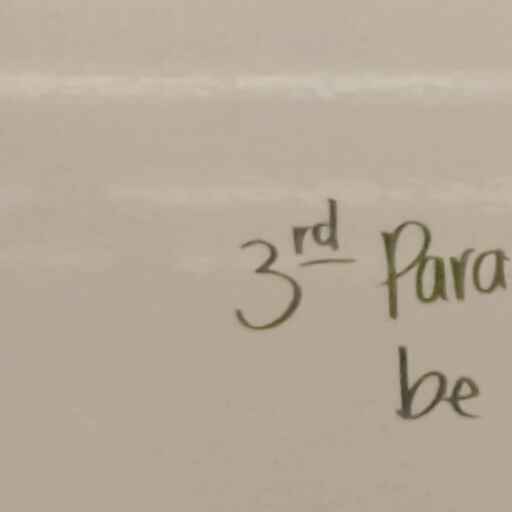 3rd Para
be